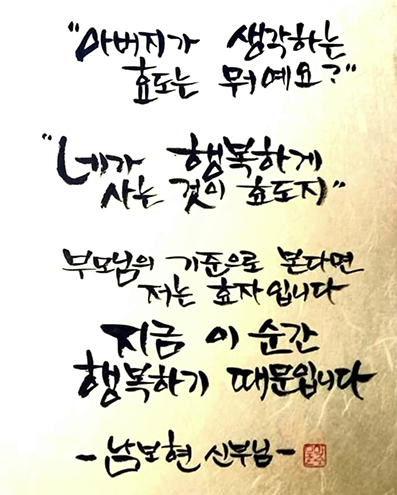 "아버지가 생각하는
효도는 뭐예요?"
"네가 행복하게
사는 것이 효도지"
부모님의 기준으로 본다면
저는 효자입니다
지금 이 순간
행복하기 때문입니다
- 남보현 신부님 -